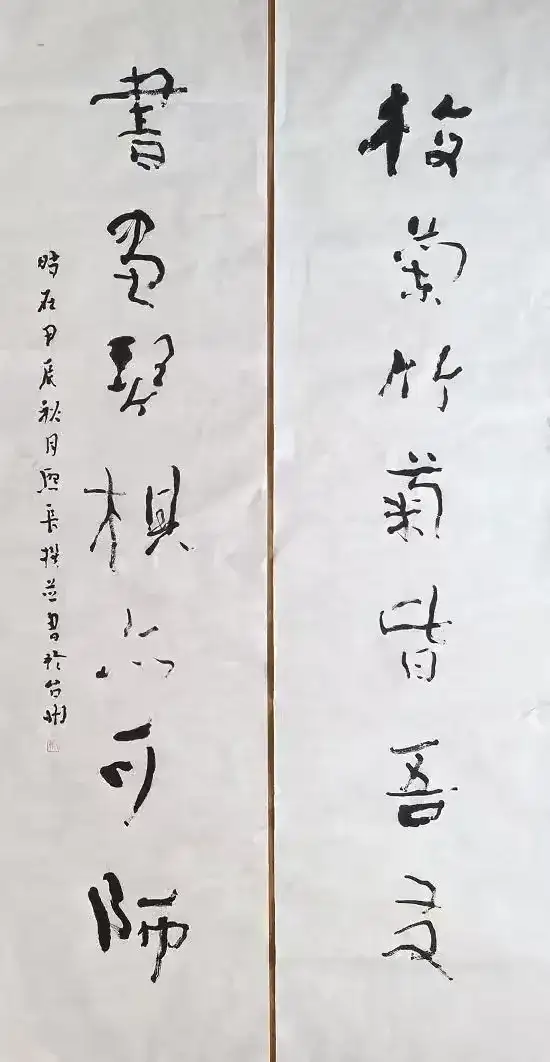 梅蘭竹菊皆吾友
書畫琴棋亦可師
時在甲辰秋月長撰並書於台州